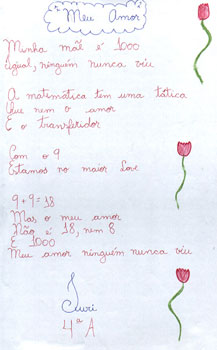 Meu Amor
Minha mãe é 1000
Igual, ninguém nunca viu
A matemática tem uma tática
Que nem o amor
E o transferidor
Com o 9
Estamos no maior love
9 + 9 = 18
Mas o meu amor
Não é 18, nem 8
É 1000
Meu amor ninguém nunca viu
Iuri
4ª A